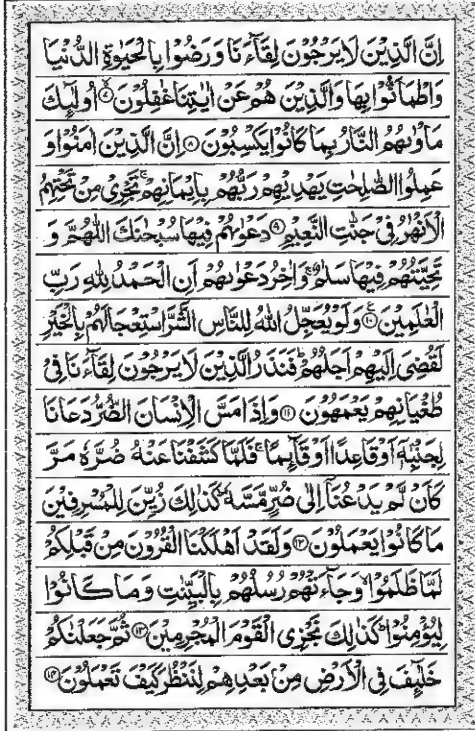 اِنَّ الَّذِيْنَ لَا يَرْجُوْنَ لِقَآءَنَا وَرَضُوْا بِالْحَيٰوةِ الدُّنْيَا
وَاطْمَاَنُّوْا بِهَا وَالَّذِيْنَ هُمْ عَنْ اٰيٰتِنَا غٰفِلُوْنَ ۝۷ اُولٰٓئِكَ
مَاْوٰىهُمُ النَّارُ بِمَا كَانُوْا يَكْسِبُوْنَ ۝۸ اِنَّ الَّذِيْنَ اٰمَنُوْا وَ
عَمِلُوا الصّٰلِحٰتِ يَهْدِيْهِمْ رَبُّهُمْ بِاِيْمَانِهِمْ ۚ تَجْرِيْ مِنْ تَحْتِهِمُ
الْاَنْهٰرُ فِيْ جَنّٰتِ النَّعِيْمِ ۝۹ دَعْوٰىهُمْ فِيْهَا سُبْحٰنَكَ اللّٰهُمَّ وَ
تَحِيَّتُهُمْ فِيْهَا سَلٰمٌ ۚ وَاٰخِرُ دَعْوٰىهُمْ اَنِ الْحَمْدُ لِلّٰهِ رَبِّ
الْعٰلَمِيْنَ ۝۱۰ وَلَوْ يُعَجِّلُ اللّٰهُ لِلنَّاسِ الشَّرَّ اسْتِعْجَالَهُمْ بِالْخَيْرِ
لَقُضِيَ اِلَيْهِمْ اَجَلُهُمْ ؕ فَنَذَرُ الَّذِيْنَ لَا يَرْجُوْنَ لِقَآءَنَا فِيْ
طُغْيَانِهِمْ يَعْمَهُوْنَ ۝۱۱ وَاِذَا مَسَّ الْاِنْسَانَ الضُّرُّ دَعَانَا
لِجَنْۢبِهٖٓ اَوْ قَاعِدًا اَوْ قَآئِمًا ۚ فَلَمَّا كَشَفْنَا عَنْهُ ضُرَّهٗ مَرَّ
كَاَنْ لَّمْ يَدْعُنَاۤ اِلٰى ضُرٍّ مَّسَّهٗ ؕ كَذٰلِكَ زُيِّنَ لِلْمُسْرِفِيْنَ
مَا كَانُوْا يَعْمَلُوْنَ ۝۱۲ وَلَقَدْ اَهْلَكْنَا الْقُرُوْنَ مِنْ قَبْلِكُمْ
لَمَّا ظَلَمُوْا ۙ وَجَآءَتْهُمْ رُسُلُهُمْ بِالْبَيِّنٰتِ وَمَا كَانُوْا
لِيُؤْمِنُوْا ؕ كَذٰلِكَ نَجْزِي الْقَوْمَ الْمُجْرِمِيْنَ ۝۱۳ ثُمَّ جَعَلْنٰكُمْ
خَلٰٓئِفَ فِي الْاَرْضِ مِنْۢ بَعْدِهِمْ لِنَنْظُرَ كَيْفَ تَعْمَلُوْنَ ۝۱۴